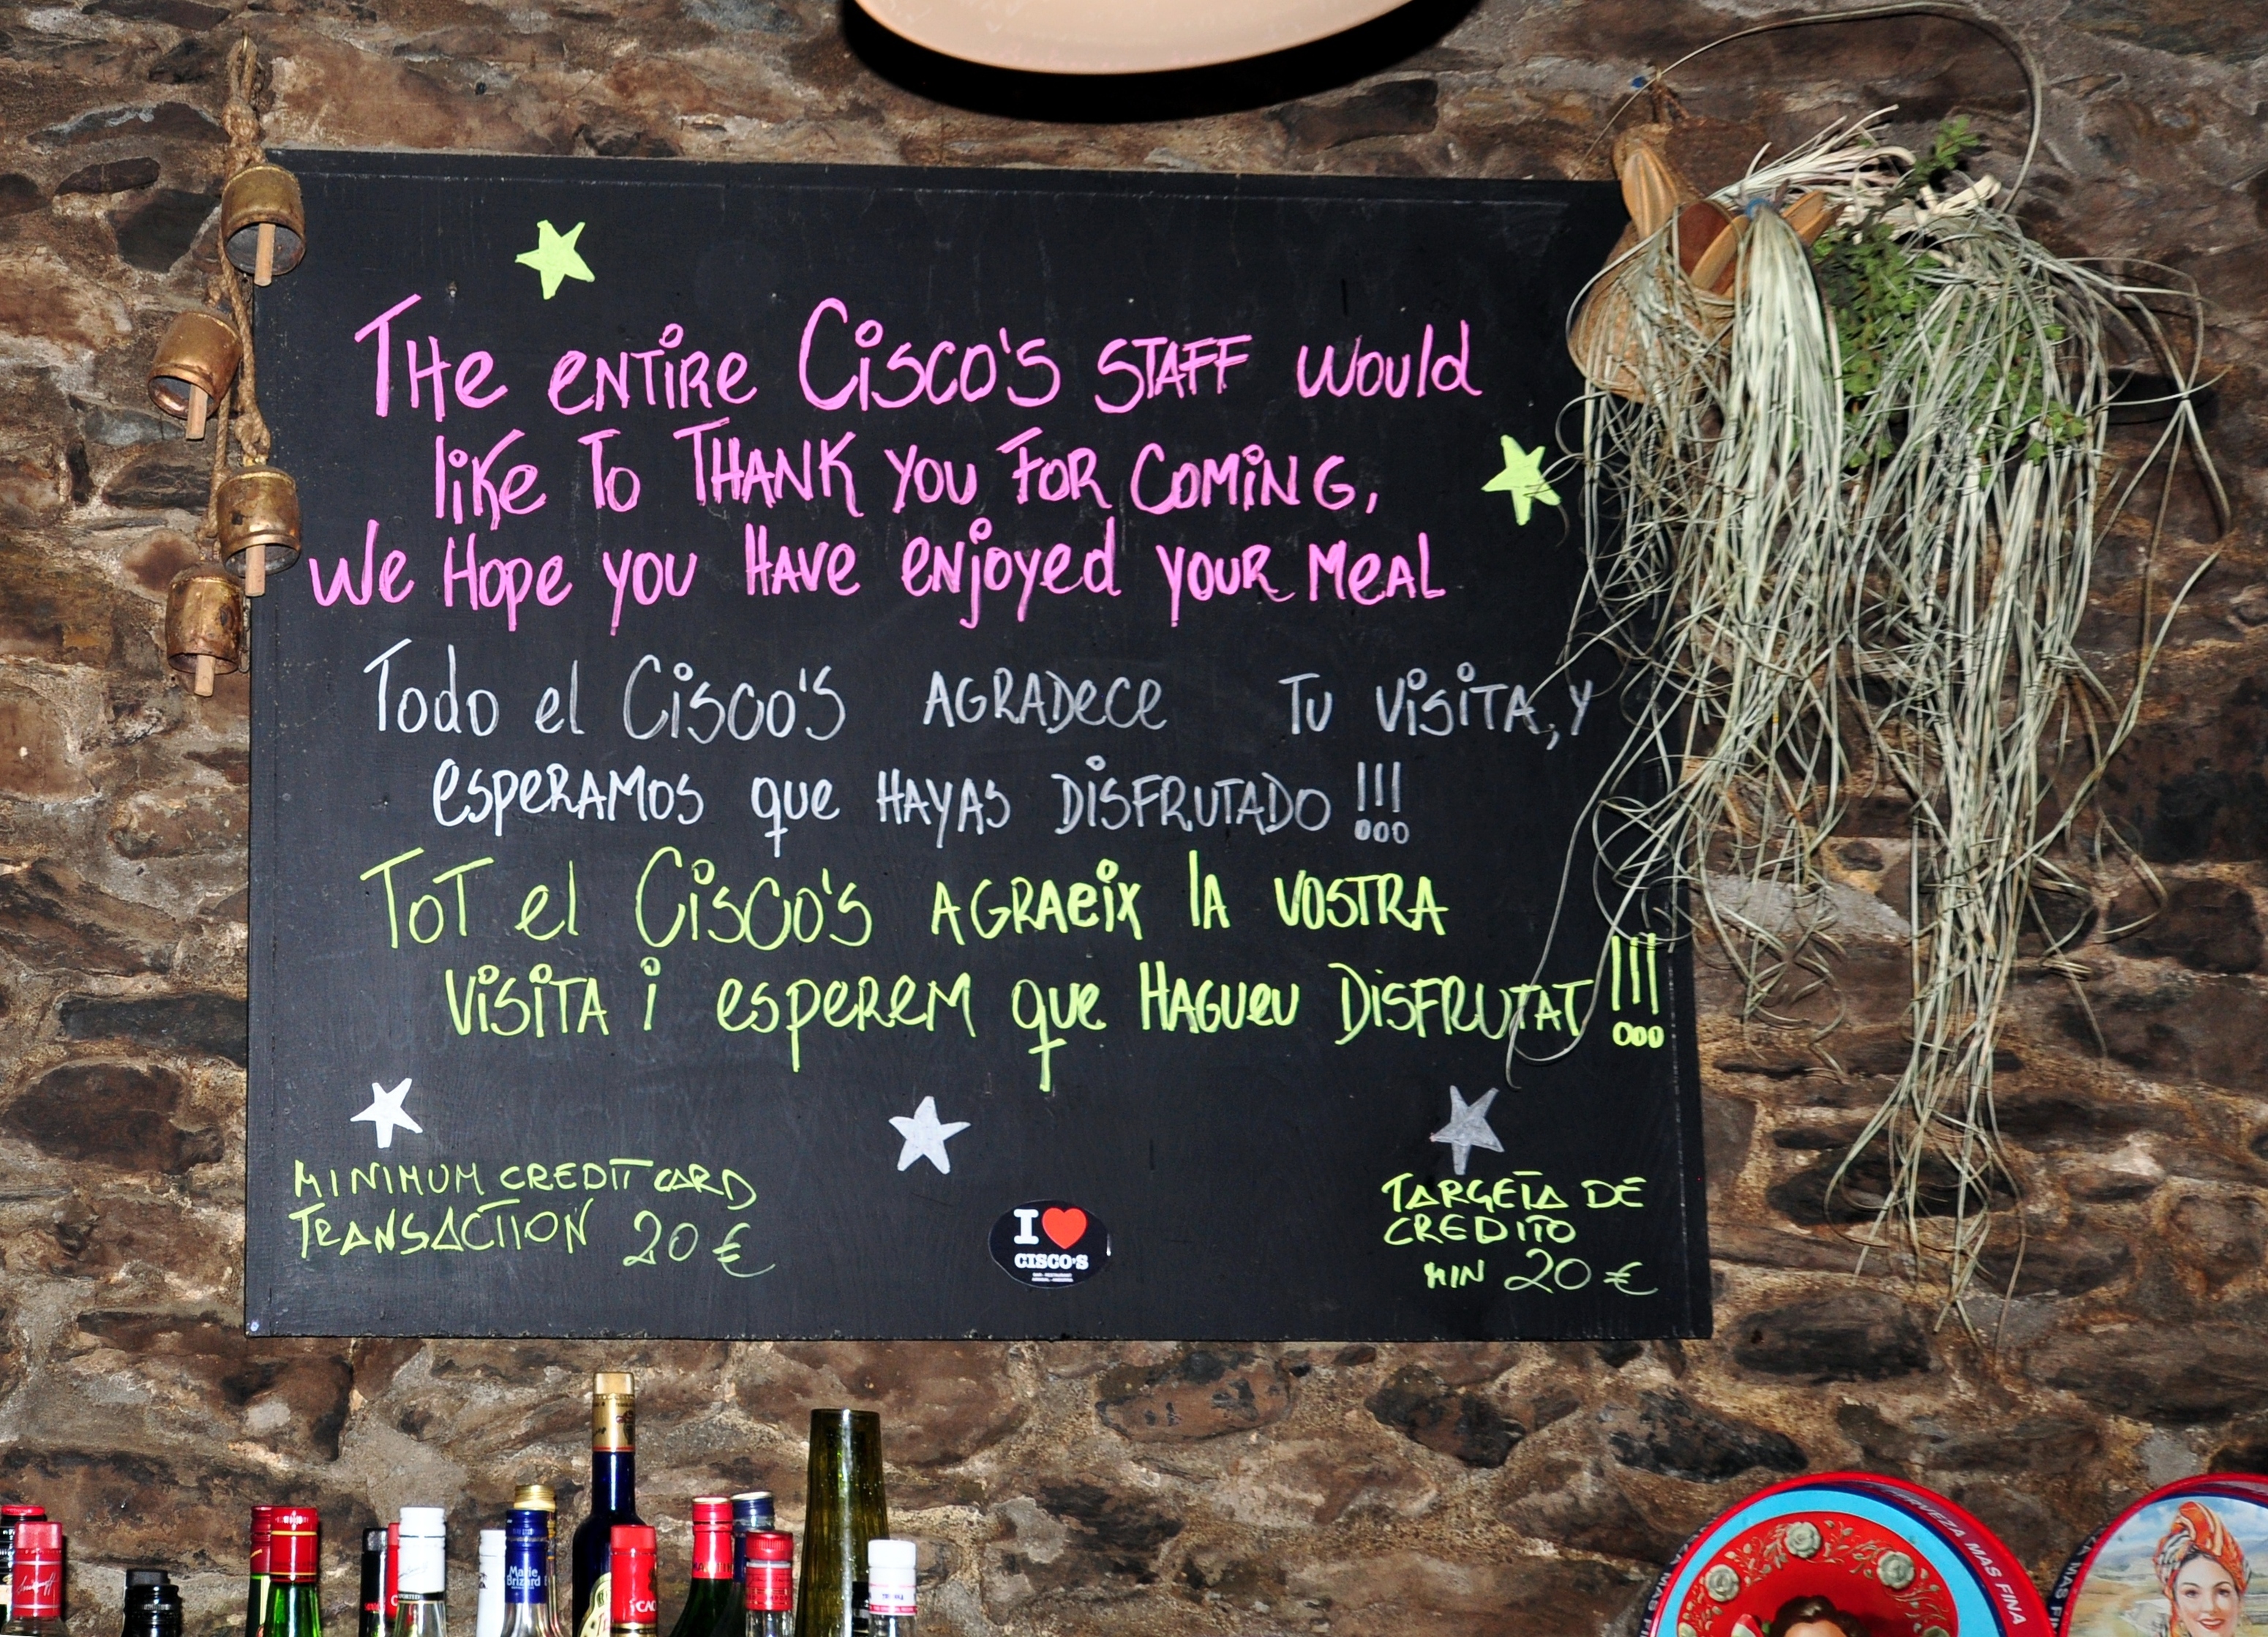 THe eNTiRe Cisco's STAFF would
like To THANK you FOR CoMiNG,
We Hope you HAVe eNjoyed youR MeAL
Todo el Cisco's AGRADece Tu VisiTA, y
esperAMos que HAYAS DisFRUTADO !!!
ToT el Cisco's AGRAeix lA VOSTRA
VisiTA i esperem que HAGUeu DisFRUTAT !!!
MINIMUM CREDIT CARD
TRANSACTION 20 €
I ❤
CISCO'S
TARGETA DE
CREDITO
MIN 20 €
Marie
Brizard
CERVEZA MAS FINA
LA MAS FI